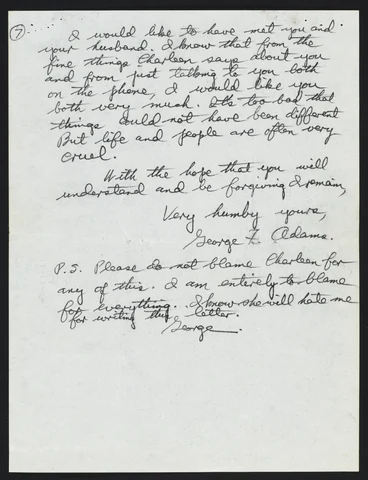 7
I would like to have met you and
your husband. I know that from the
fine things Charleen says about you
and from just talking to you both
on the phone, I would like you
both very much. It's too bad that
things could not have been different
But life and people are often very
cruel.
With the hope that you will
understand and be forgiving I remain,
Very humby yours,
George F. Adams.
P.S. Please do not blame Charleen for
any of this. I am entirely to blame
for everything. I know she will hate me
for writing this letter.
George.